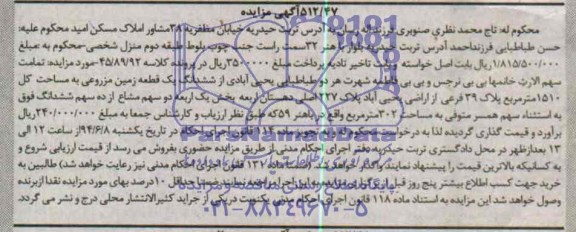 ۵۱۲/۴۷آگهی مزایده
محکوم له: تاج محمد نظری صنوبری فرزند آدرس تربت حیدریه خیابان مظفریه ۳۱مشاور املاک مسکن امید محکوم علیه:
حسن طباطبایی فرزنداحمد آدرس تربت حیدریه بلوار باهنر ۳۲سمت راست جنب چوب بلوط طبقه دوم منزل شخصی-محکوم به :مبلغ
۱/۸۱۵/۵۰۰/۰۰۰ریال بابت اصل خواسته تاخیر تادیه پرداخت مبلغ ریال در پرونده کلاسه ۴۵/۸۹/۹۲-مورد مزایده: تمامت
سهم الارث خانمها بی بی نرجس و بی بی فاطمه شهرت هر دو طباطبایی یحیی آبادی از ششدانگ یک قطعه زمین مزروعی به مساحت کل
۱۵۱۰مترمربع پلاک ۳۹ فرعی از اراضی یحیی آباد پلاک ۲۲۷ اصلی دهستان اربعه بخش یک اربعه دو سهم مشاع از ده سهم ششدانگ فوق
به استثناء سهم همسر متوفی به مساحت ۳۰۲مترمربع واقع در باهنر ۵۹که طبق نظر ارزیاب و کارشناس جمعا به مبلغ ۲۴۰/۰۰۰/۰۰۰ریال
برآورد و قیمت گذاری گردیده لذا به درخواست محکوم له و به تجویز ماده ۱۱۴ قانون اجرای احکام در تاریخ یکشنبه ۹۴/۶/۸از ساعت ۱۲ الی
۱۳ بعدازظهر در محل دادگستری تربت حیدریه دفتر اجرای احکام مدنی از طریق مزایده حضوری بفروش می رسد از قیمت ارزیابی شروع و
به کسانیکه بالاترین قیمت را پیشنهاد نمایند واگذار خواهد شد ماده ۱۳۷ قانون اجرای احکام مدنی نیز رعایت خواهد شد) طالبین به
خرید جهت کسب اطلاع بیشتر پنج روز قبل از مزایده به دفتر اجرا مراجعه نمایند حداقل ۱۰درصد بهای مورد مزایده نقدا ازبرنده
وصول خواهد شد این مزایده به استناد ماده ۱۱۸ قانون اجرای احکام مدنی یکنوبت دریکی از جراید کثیرالانتشار محلی درج و نشر می گردد.
۰۲۱-۸۸۳۴۹۶۷۰-۵